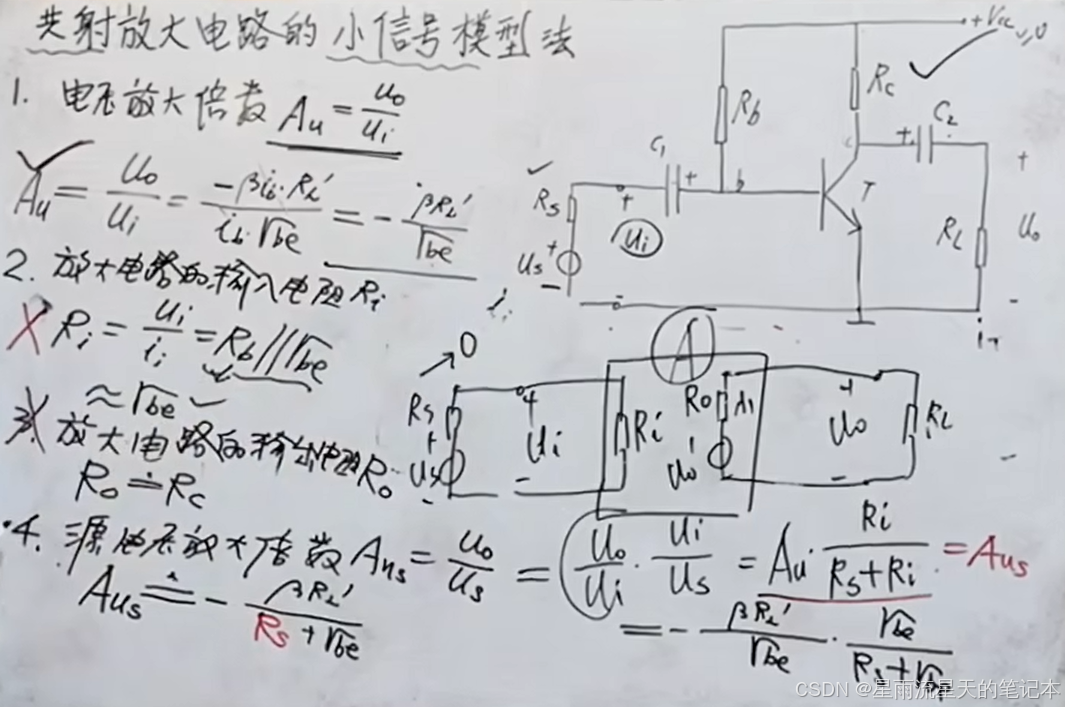 共射放大电路的小信号模型法
1. 电压放大倍数 Au = uo/ui
Au = uo/ui = -βib·RL'/ib·rbe = -βRL'/rbe
2. 放大电路的输入电阻Ri
Ri = ui/ii = Rb//rbe
≈ rbe
3. 放大电路的输出电阻Ro
Ro ≐ Rc
4. 源电压放大倍数 Aus = uo/us = uo/ui · ui/us = Au · Ri/Rs+Ri = Aus
Aus ≐ - βRL'/Rs+rbe
= - βRL'/rbe · rbe/Rs+rbe
+Vcc
Rb
Rc
C1
+
C2
+
b
c
T
Rs
us
+
-
+
ui
RL
+
uo
-
ii
A
0
Rs
+
us
-
+
ui
-
Ri
Ro
uo'
+
uo
-
RL
CSDN @星雨流星天的笔记本